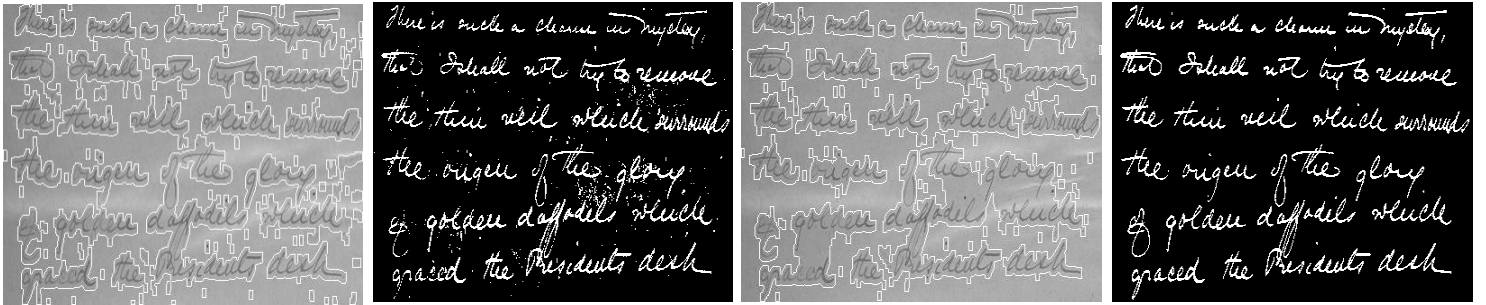 There is such a charm in mystery,
that I shall not try to remove
the thin veil which surrounds
the origin of the glory
of golden daffodils which
graced the Presidents desk
There is such a charm in mystery,
that I shall not try to remove
the thin veil which surrounds
the origin of the glory
of golden daffodils which
graced the Presidents desk
There is such a charm in mystery,
that I shall not try to remove
the thin veil which surrounds
the origin of the glory
of golden daffodils which
graced the Presidents desk
There is such a charm in mystery,
that I shall not try to remove
the thin veil which surrounds
the origin of the glory
of golden daffodils which
graced the Presidents desk